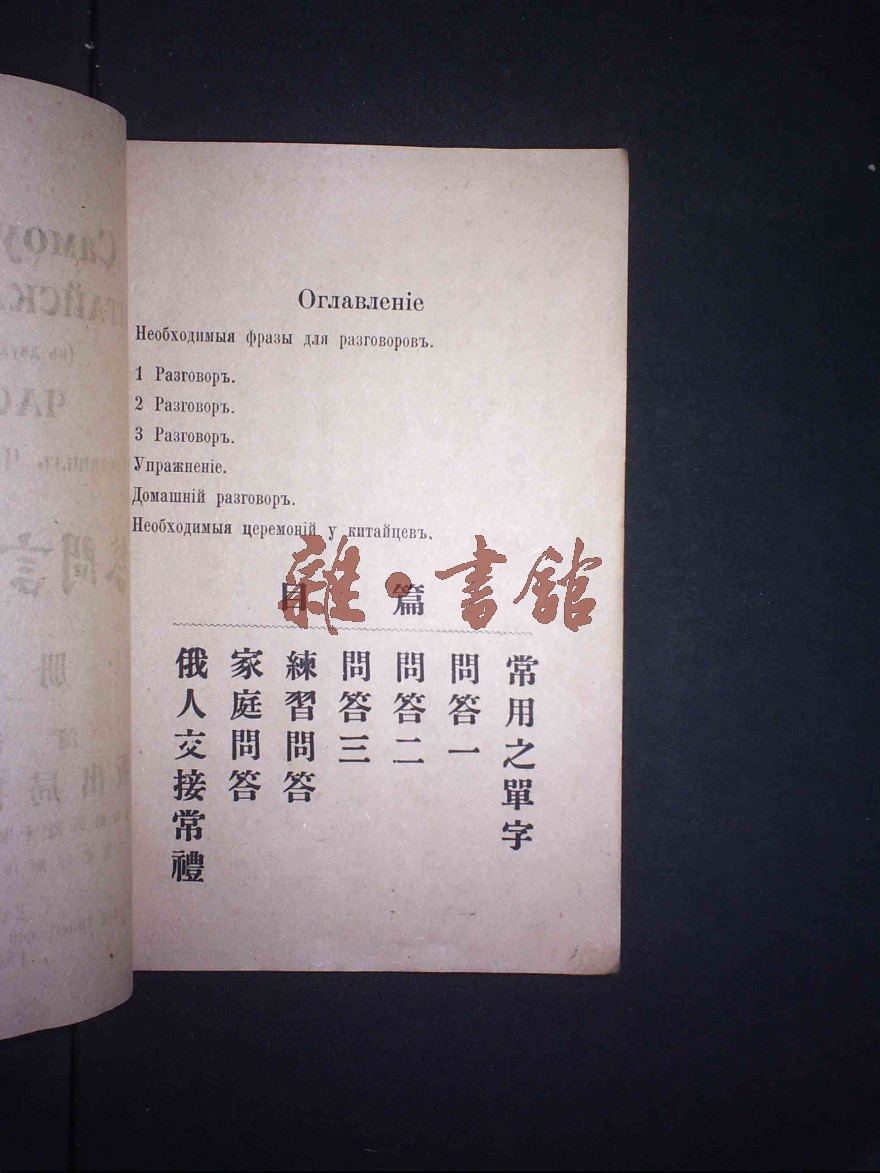 Оглавленіе
Необходимыя фразы для разговоровъ.
1 Разговоръ.
2 Разговоръ.
3 Разговоръ.
Упражненіе.
Домашній разговоръ.
Необходимыя церемоній у китайцевъ.
雜·書館
目 篇
常用之單字
問答一
問答二
問答三
練習問答
家庭問答
俄人交接常禮